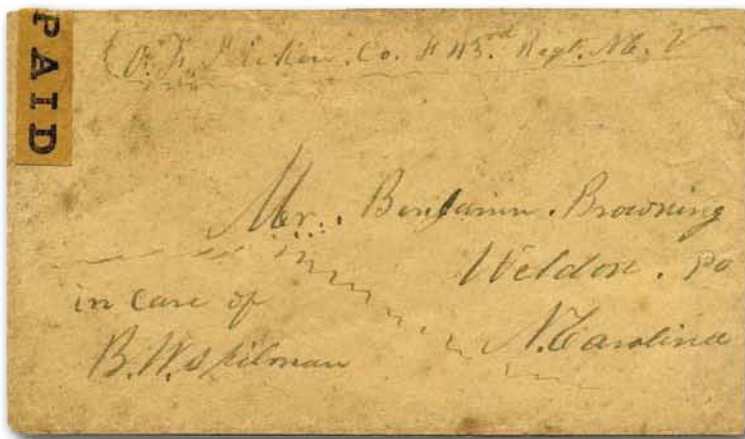 PAID
Co. F 43rd Regt. N.C. V
Mr. Benjamin. Browning
Weldon. PO
N. Carolina
in care of
B. W. Spilman